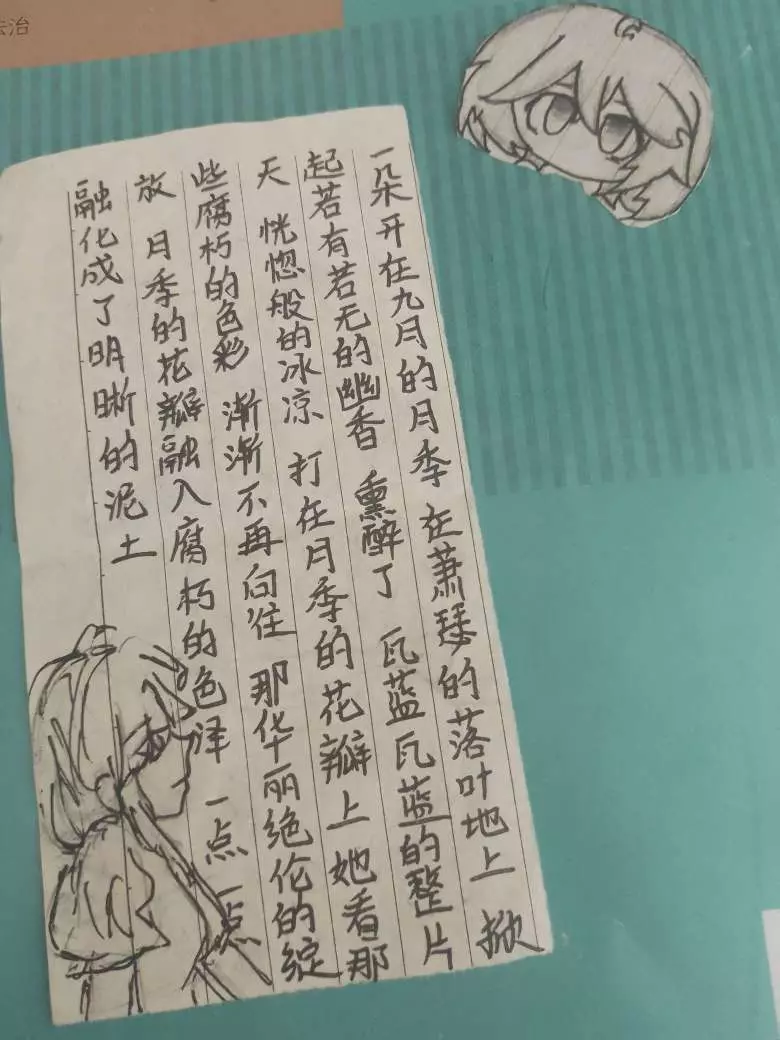 法治
一朵开在九月的月季 在萧瑟的落叶地上 掀
起若有若无的幽香 熏醉了 瓦蓝瓦蓝的整片
天 恍惚般的冰凉 打在月季的花瓣上 她看那
些腐朽的色彩 渐渐不再向往 那华丽绝伦的绽
放 月季的花瓣融入腐朽的色泽 一点一点
融化成了明晰的泥土